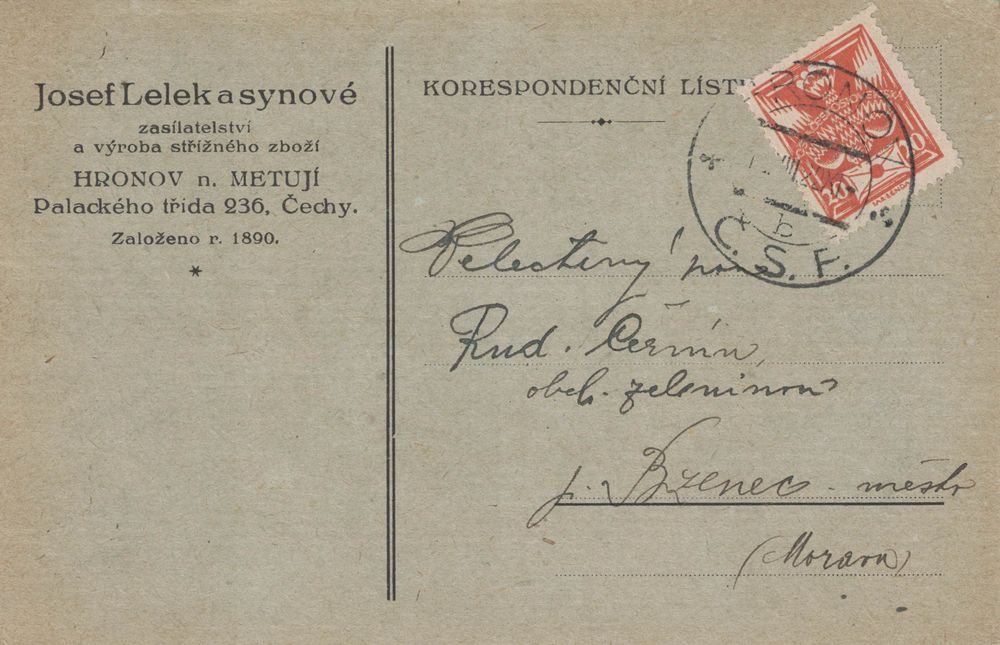 Josef Lelek a synové
zasílatelství
a výroba střížného zboží
HRONOV n. METUJÍ
Palackého třída 236, Čechy.
Založeno r. 1890.
*
KORESPONDENČNÍ LÍST
HRONOV
* b
Č.S.F.
20 20
Velectěný pan
Rud. Čermín,
obch. zeleninou
p. Bzenec - město
(Morava)